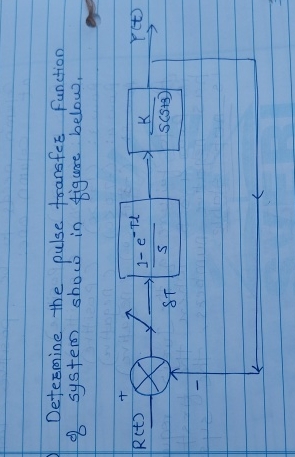 Determine the pulse transfer function
of system show in figure below.
R(t)
+
-
ST
1-e^-Ts
S
K
S(S+3)
Y(t)